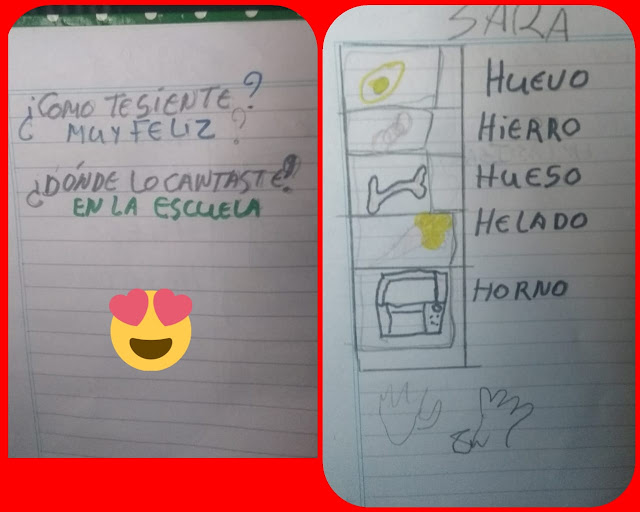 ¿COMO TE SIENTE?
¿ MUY FELIZ ?
¿DÓNDE LO CANTASTE?
EN LA ESCUELA
SARA
HUEVO
HiERRO
HUESO
HELADO
HORNO